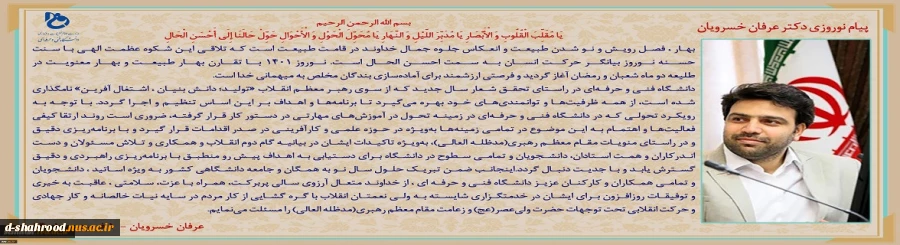 پیام نوروزی دکتر عرفان خسرویان
بسم الله الرحمن الرحیم
یَا مُقَلِّبَ القُلُوبِ وَ الأَبْصَارِ یَا مُدَبِّرَ اللَّیْلِ وَ النَّهَارِ یَا مُحَوِّلَ الْحَوْلِ وَ الأَحْوَالِ حَوِّلْ حَالَنَا إِلَی أَحْسَنِ الْحَالِ
بهار ، فصل رویش و نو شدن طبیعت و انعکاس جلوه جمال خداوند در قامت طبیعت است که تلاقی این شکوه عظمت الهی با سنت
حسنه نوروز بیانگر حرکت انسان به سمت احسن الحال است. نوروز ۱۴۰۱ با تقارن بهار طبیعت و بهار معنویت در
طلیعه دو ماه شعبان و رمضان آغاز گردید و فرصتی ارزشمند برای آماده‌سازی بندگان مخلص به میهمانی خدا است.
دانشگاه فنی و حرفه‌ای در راستای تحقق شعار سال جدید که از سوی رهبر معظم انقلاب «تولید؛ دانش بنیان ، اشتغال آفرین» نامگذاری
شده است، از همه ظرفیت‌ها و توانمندی‌های خود بهره می‌گیرد تا برنامه‌ها و اهداف بر این اساس تنظیم و اجرا گردد. با توجه به
رویکرد تحولی که در دانشگاه فنی و حرفه‌ای در زمینه تحول در آموزش‌های مهارتی در دستور کار قرار گرفته، ضروری است روند ارتقا کیفی
فعالیت‌ها و اهتمام به این موضوع در تمامی زمینه‌ها به‌ویژه در حوزه علمی و کارآفرینی در صدر اقدامات قرار گیرد و با برنامه‌ریزی دقیق
و در راستای منویات مقام معظم رهبری(مدظله العالی)، به‌ویژه تاکیدات ایشان در بیانیه گام دوم انقلاب و همکاری و تلاش مسئولان و دست
اندرکاران و همت استادان، دانشجویان و تمامی سطوح در دانشگاه برای دستیابی به اهداف پیش رو منطبق با برنامه‌ریزی راهبردی و دقیق
گسترش یابد و با جدیت دنبال گردد.اینجانب ضمن تبریک حلول سال نو به همگان و جامعه دانشگاهی کشور به ویژه اساتید ، دانشجویان
و تمامی همکاران و کارکنان عزیز دانشگاه فنی و حرفه ای ، از خداوند متعال آرزوی سالی پربرکت، همراه با عزت، سلامتی ، عاقبت به خیری
و توفیقات روزافزون برای ایشان در خدمتگزاری شایسته به ولی نعمتان انقلاب با گره گشایی از کار مردم در سایه نیات خالصانه و کار جهادی
و حرکت انقلابی تحت توجهات حضرت ولی‌عصر(عج) و زعامت مقام معظم رهبری(مدظله العالی) را مسئلت می‌نمایم.
عرفان خسرویان
d-shahrood.nus.ac.ir